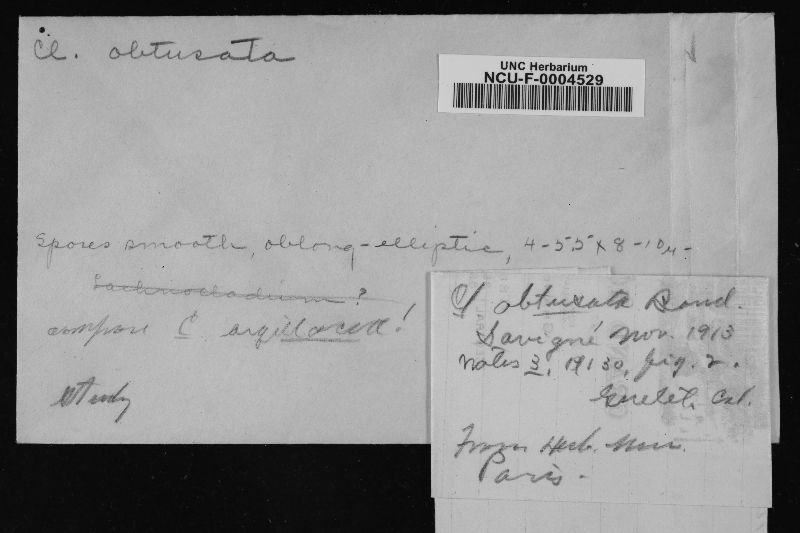 Cl. obtusata
UNC Herbarium
NCU-F-0004529
Spores smooth, oblong-elliptic, 4-5.5 x 8-10µ-
Lachnocladium?
compare C. argillacea!
Study
Cl obtusata Boud.
Savigné Nov. 1913
Notes 3,
fig. 2.
Col.
From Herb. Mus.
Paris-